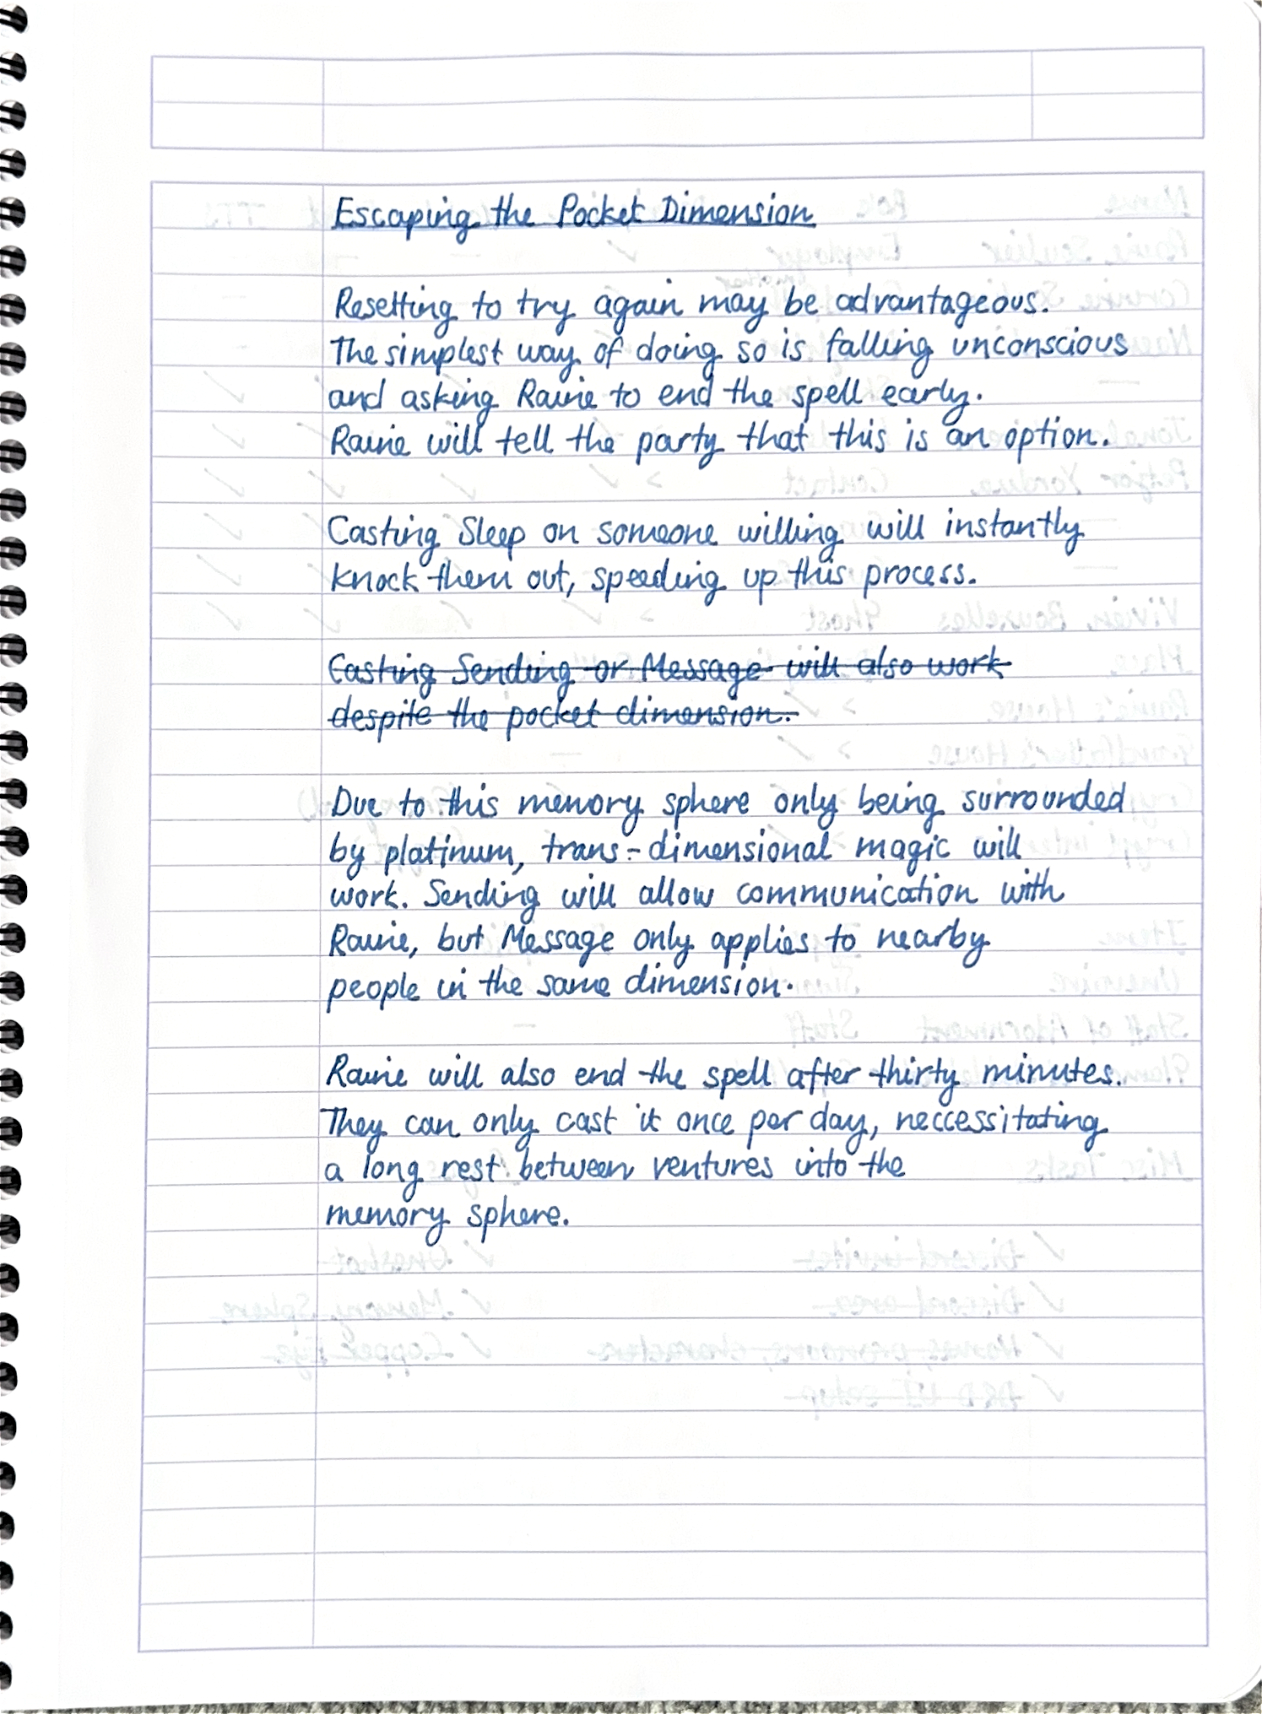 Escaping the Pocket Dimension
Resetting to try again may be advantageous.
The simplest way of doing so is falling unconscious
and asking Raine to end the spell early.
Raine will tell the party that this is an option.
Casting Sleep on someone willing will instantly
knock them out, speeding up this process.
Casting Sending or Message will also work
despite the pocket dimension.
Due to this memory sphere only being surrounded
by platinum, trans-dimensional magic will
work. Sending will allow communication with
Raine, but Message only applies to nearby
people in the same dimension.
Raine will also end the spell after thirty minutes.
They can only cast it once per day, neccessitating
a long rest between ventures into the
memory sphere.